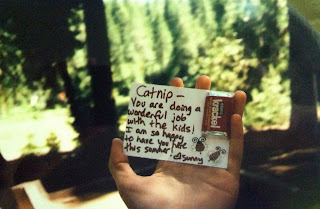 Catnip —
You are doing a
wonderful job
with the kids!
I am so happy
to have you here
this summer!
♡ Sunny
krackel